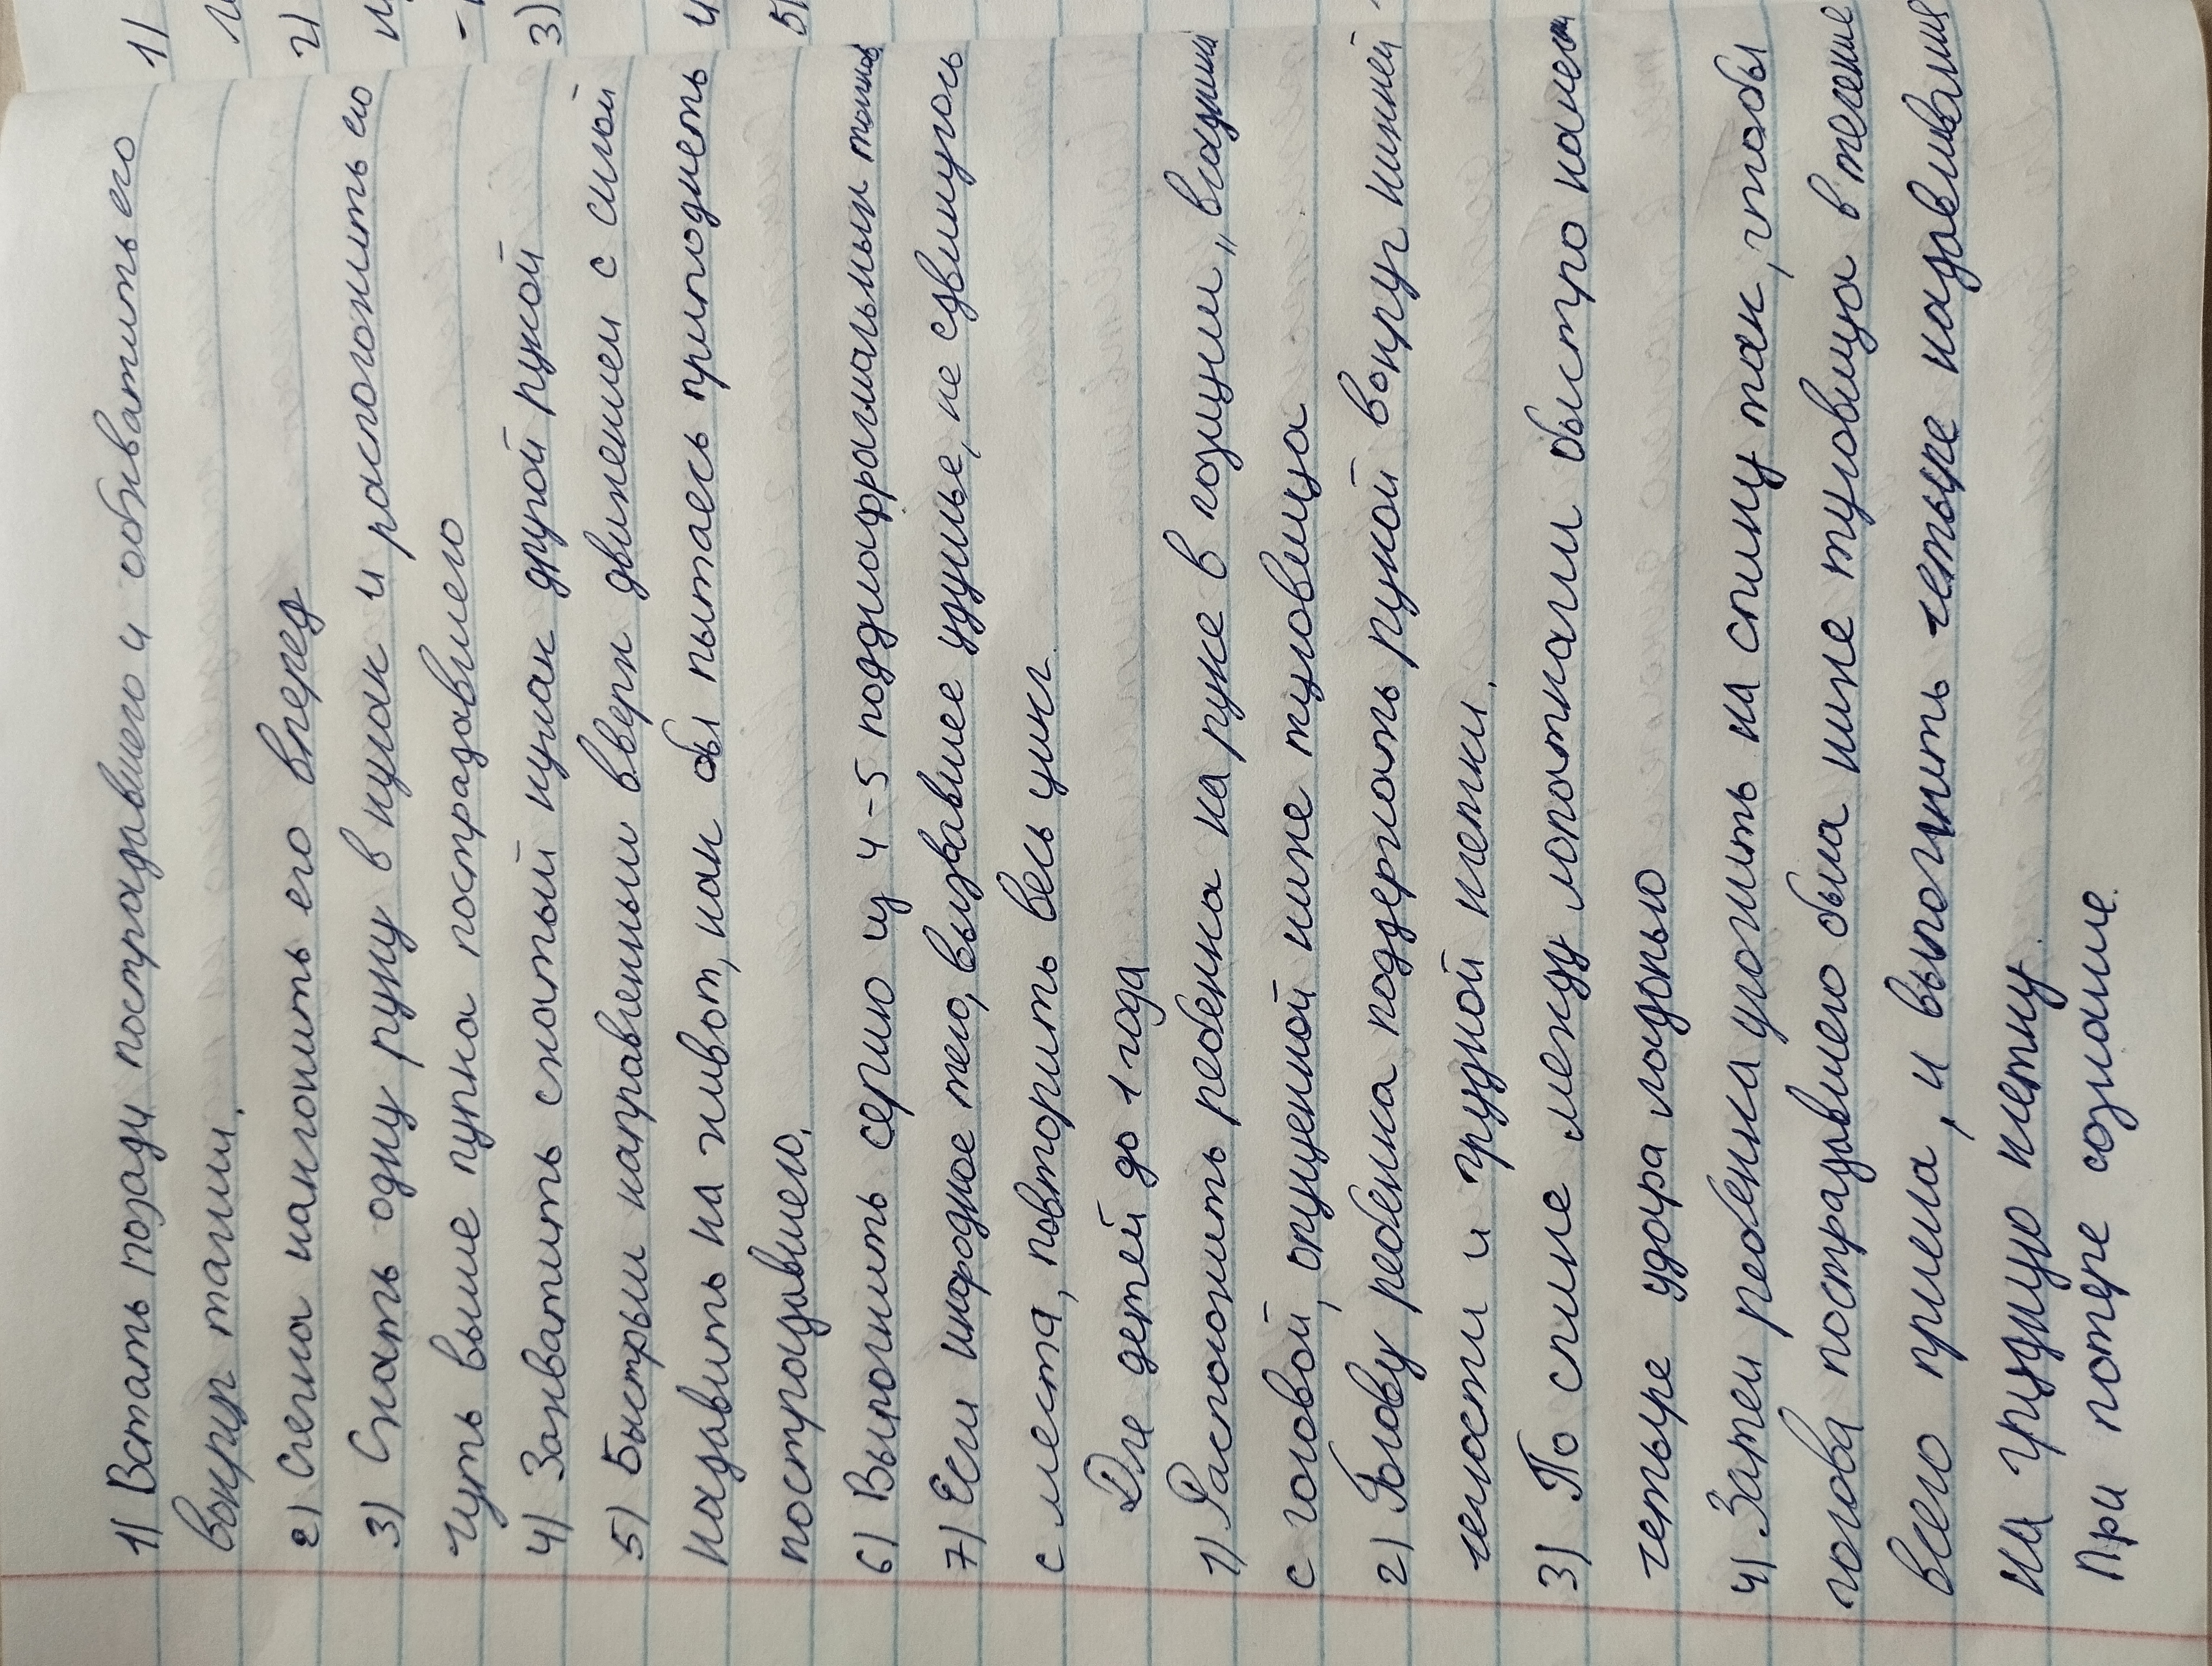 1) Встать позади пострадавшего и обхватить его
вокруг талии.
2) Слегка наклонить его вперед
3) Сжать одну руку в кулак и расположить его
чуть выше пупка пострадавшего
4) Захватить сжатый кулак другой рукой
5) Быстрым направленным вверх движением с силой
надавить на живот, как бы пытаясь приподнять
пострадавшего.
6) Выполнить серию из 4-5 поддиафрагмальных
7) Если инородное тело, вызвавшее удушье, не сдвинулось
с места, повторить весь цикл.
Для детей до 1 года
1) Расположить ребенка на руке в позиции „всадника
с головой, опущенной ниже туловища
2) Голову ребенка поддержать рукой вокруг нижней
челюсти и грудной клетки.
3) По спине между лопатками быстро нанести
четыре удара ладонью
4) Затем ребенка уложить на спину так, чтобы
голова пострадавшего была ниже туловища в течение
всего приема, и выполнить четыре надавливания
на грудную клетку.
При потере сознание.
1)
2)
3)
4
5)